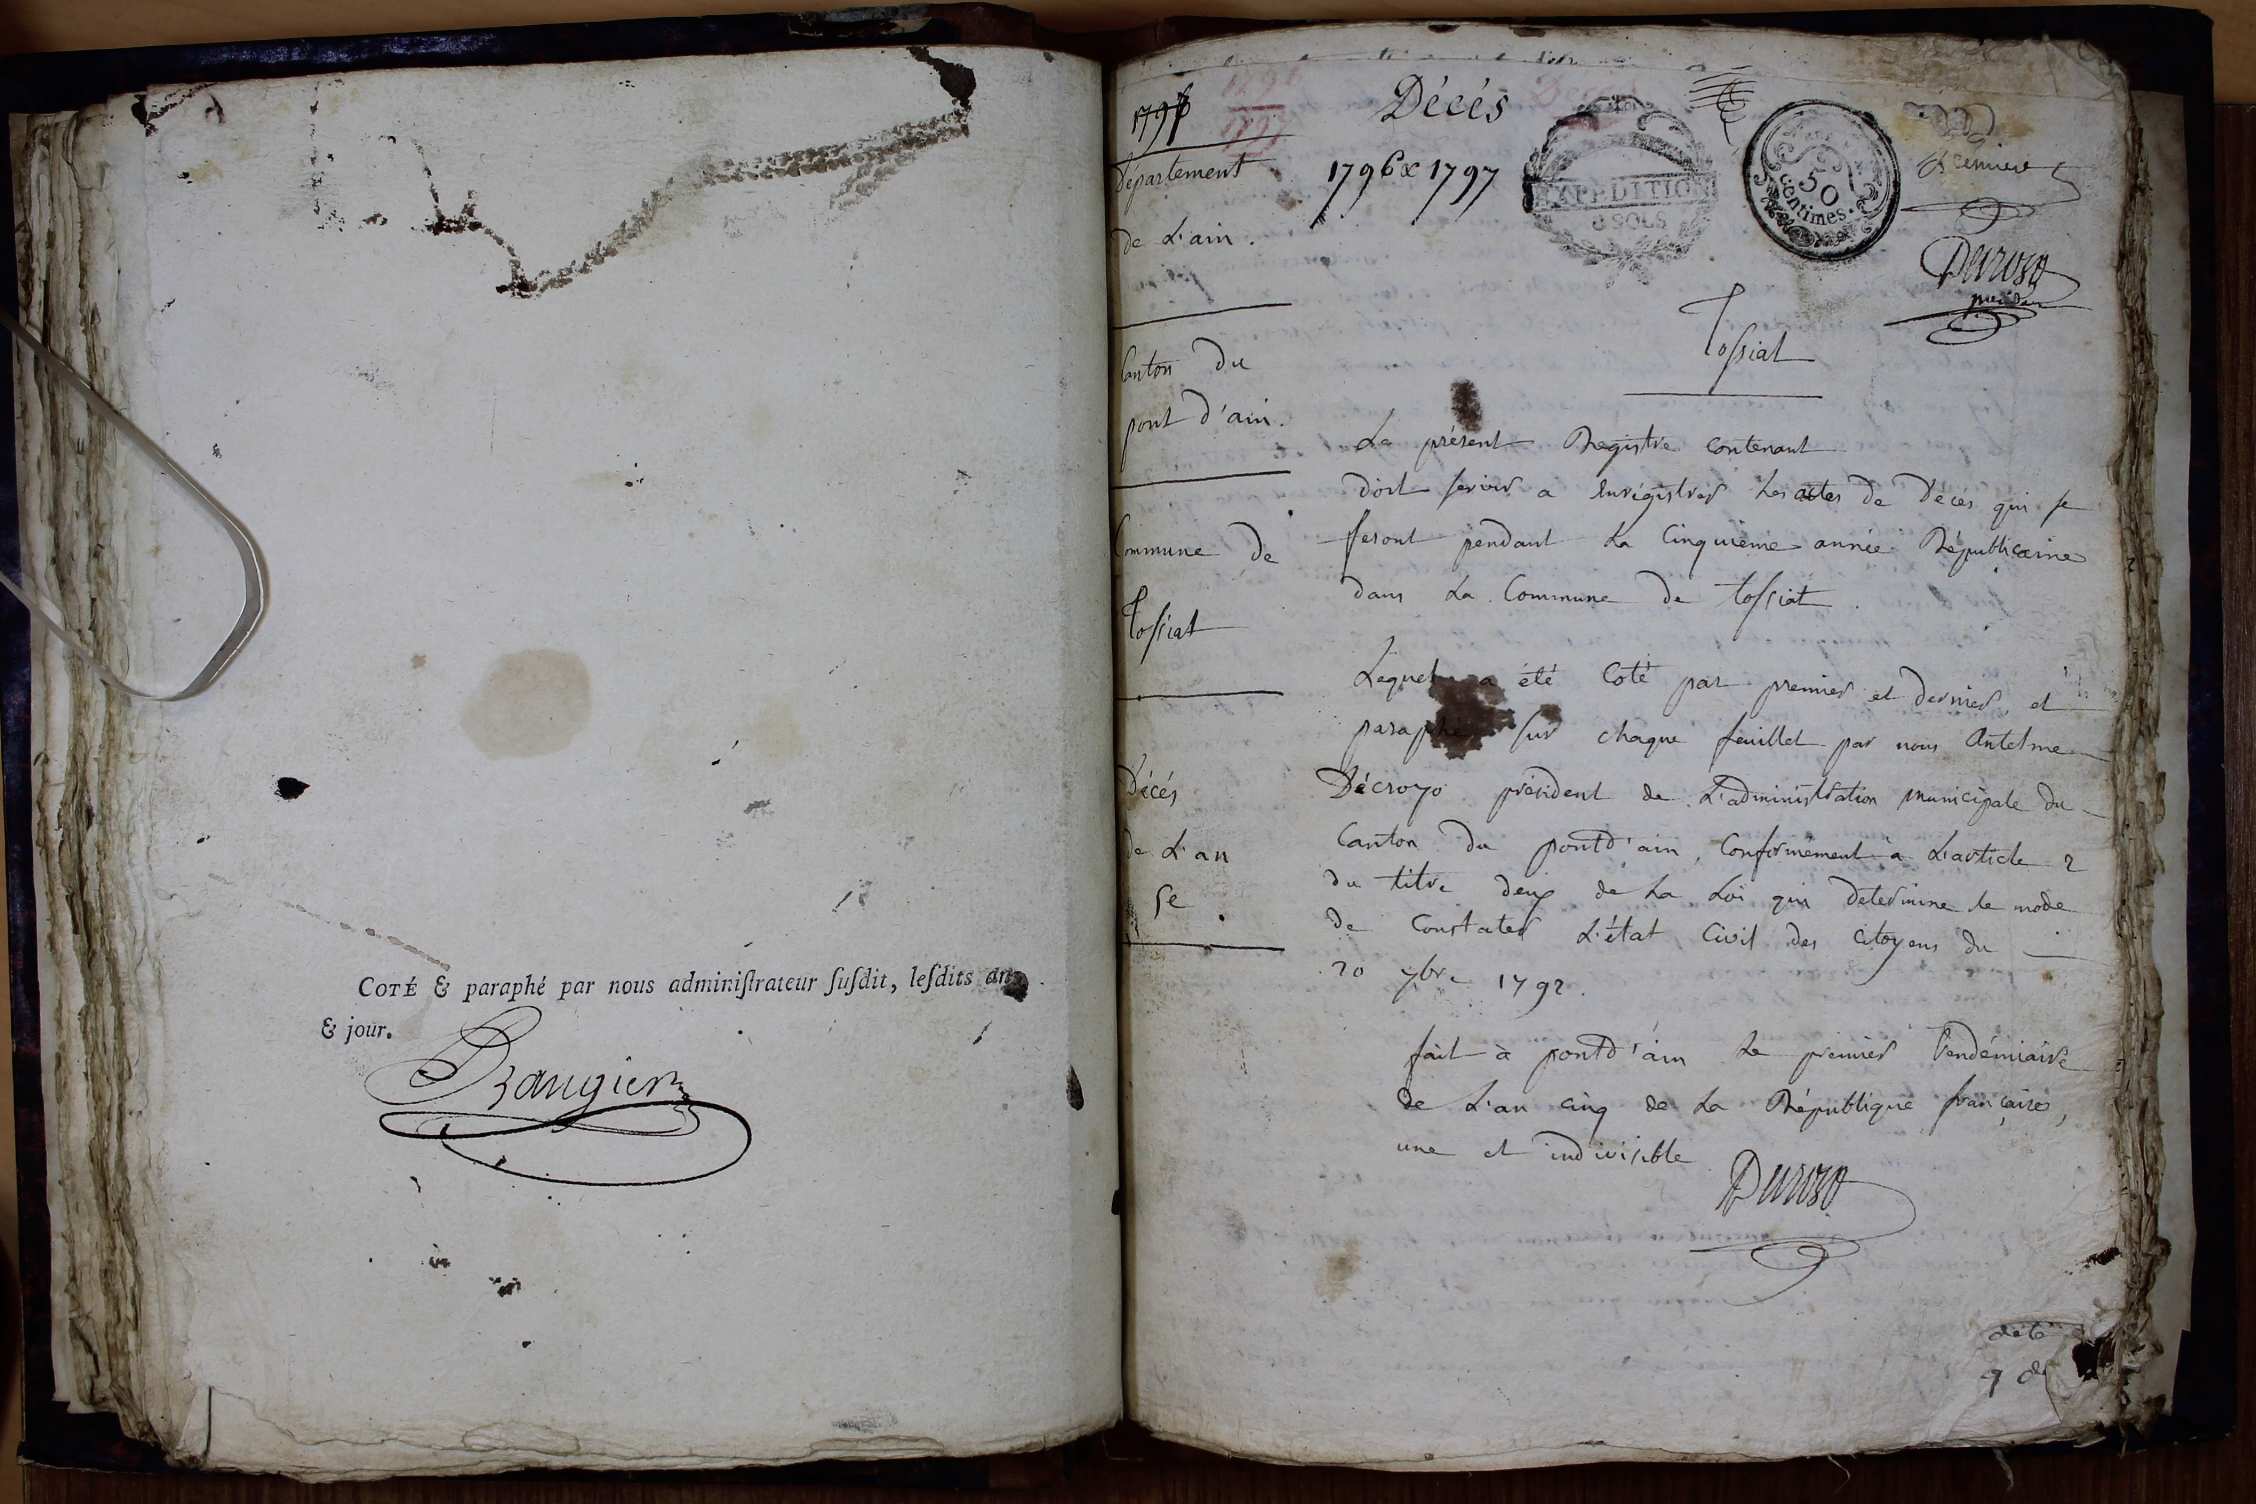 COTÉ & paraphé par nous adminiſtrateur ſuſdit, leſdits an
& jour.
Rangier
Décés
1796 & 1797
EXPEDITION
8 SOLS
50
centimes.
premier
Duroso
président
Département
de L'ain.
Canton du
pont d'ain.
Commune de
Tossiat
Décés
de L'an
5e
Tossiat
Le présent Registre contenant
doit servir a Enrégistrer Les actes de Décés qui se
feront pendant La Cinquième année Républicaine
dans La Commune de tossiat.
Lequel a été Coté par premier et dernier, et
paraphé sur chaque feuillet par nous Antelme
Décroʒo président de L'administration municipale du
Canton du pontd'ain, Conformément à L'article 2
du titre deux de La Loi qui détermine le mode
de Constater L'état Civil des Citoyens du
20 7bre 1792.
fait à pontd'ain Le premier Vendémiaire
de L'an cinq de La République française,
une et indivisible
Duroso